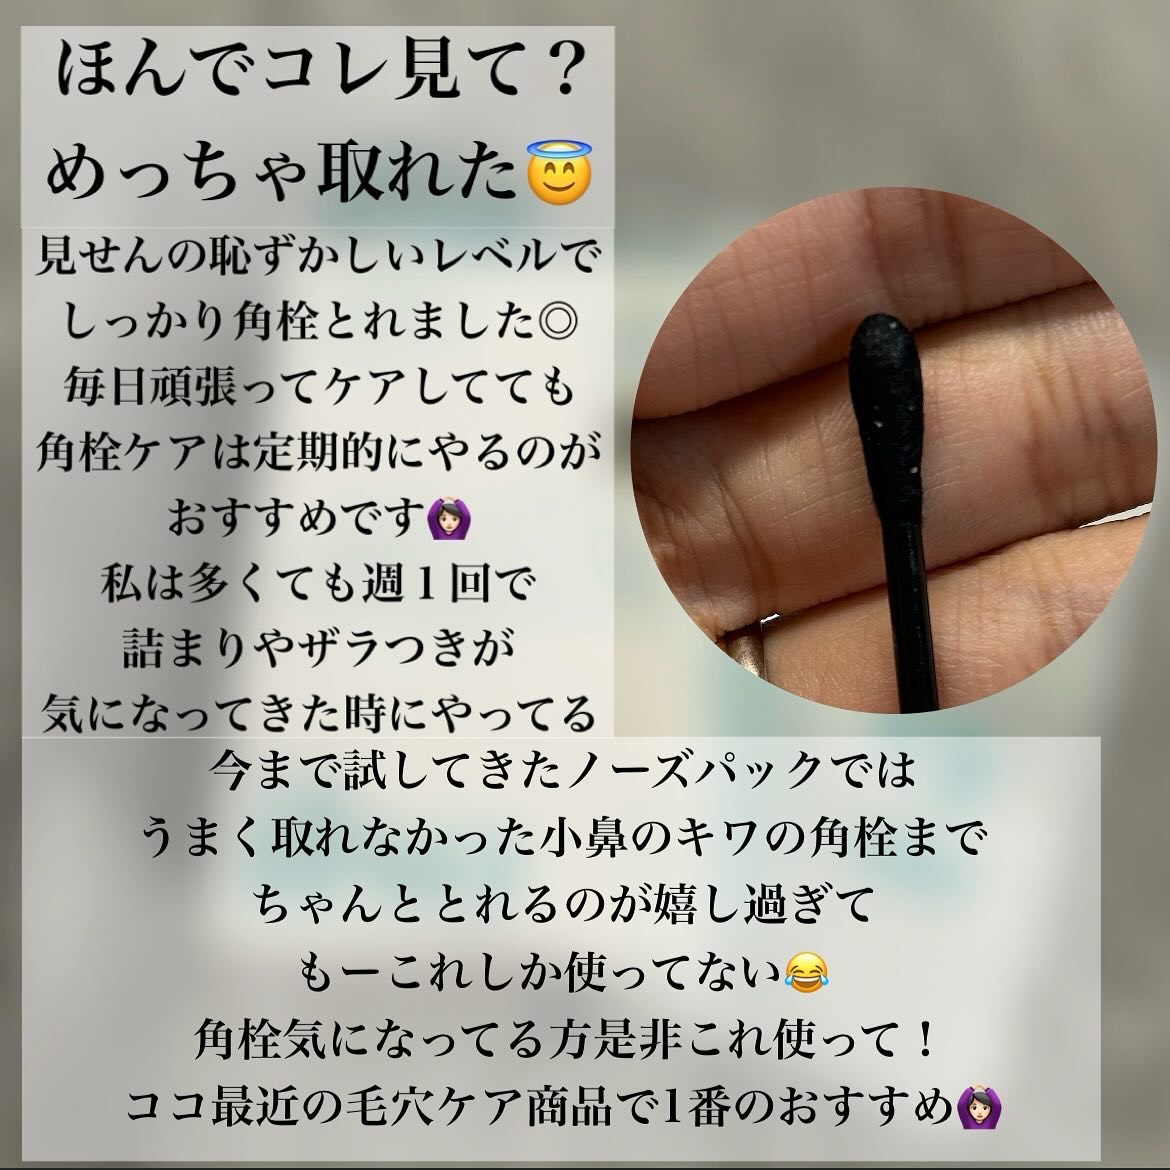 ほんでコレ見て？
めっちゃ取れた😇
見せんの恥ずかしいレベルで
しっかり角栓とれました◎
毎日頑張ってケアしてても
角栓ケアは定期的にやるのが
おすすめです🙆🏻‍♀️
私は多くても週１回で
詰まりやザラつきが
気になってきた時にやってる
今まで試してきたノーズパックでは
うまく取れなかった小鼻のキワの角栓まで
ちゃんととれるのが嬉し過ぎて
もーこれしか使ってない😂
角栓気になってる方是非これ使って！
ココ最近の毛穴ケア商品で1番のおすすめ🙆🏻‍♀️